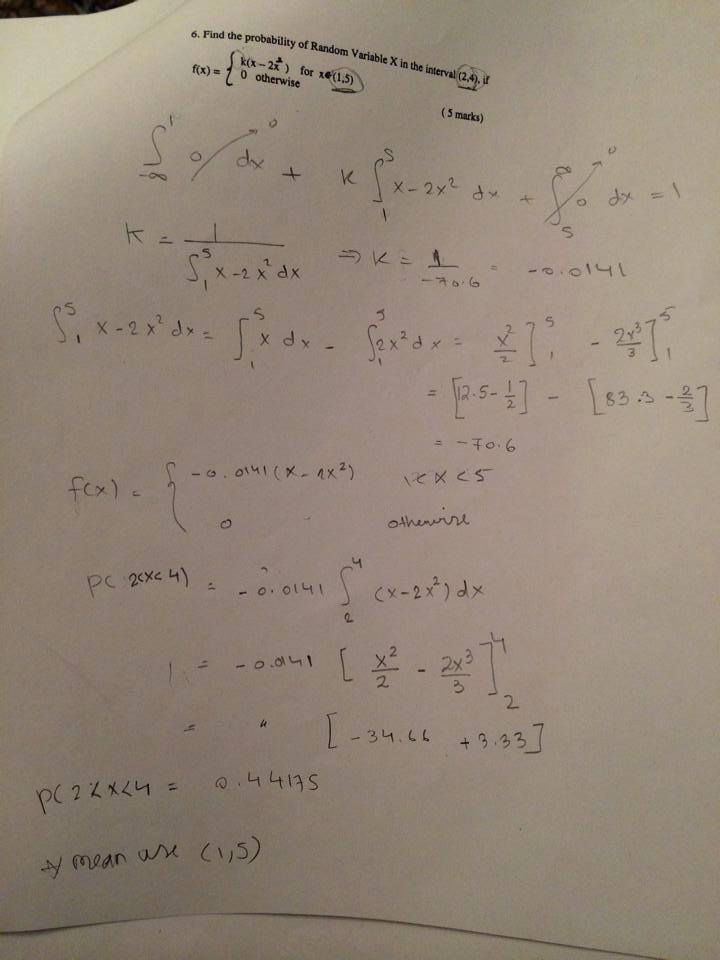 6. Find the probability of Random Variable X in the interval (2,4), if
f(x) = { k(x – 2x²) for x∈(1,5)
0 otherwise
(5 marks)
∫_{-∞}^{1} 0 dx → 0 + K ∫_{1}^{5} x - 2x² dx + ∫_{5}^{∞} 0 dx → 0 = 1
K = 1 / ∫_{1}^{5} x - 2x² dx ⇒ K = 1 / -70.6 = -0.0141
∫_{1}^{5} x - 2x² dx = ∫_{1}^{5} x dx - ∫_{1}^{5} 2x² dx = x²/2 ]_{1}^{5} - 2x³/3 ]_{1}^{5}
= [12.5 - 1/2] - [83.3 - 2/3]
= -70.6
f(x) = { -0.0141 (x - 2x²) 1 < x < 5
0 otherwise
P( 2<x<4) = -0.0141 ∫_{2}^{4} (x - 2x²) dx
= -0.0141 [ x²/2 - 2x³/3 ]_{2}^{4}
= " [ -34.66 + 3.33]
P( 2<x<4 = 0.44175
mean use (1,5)